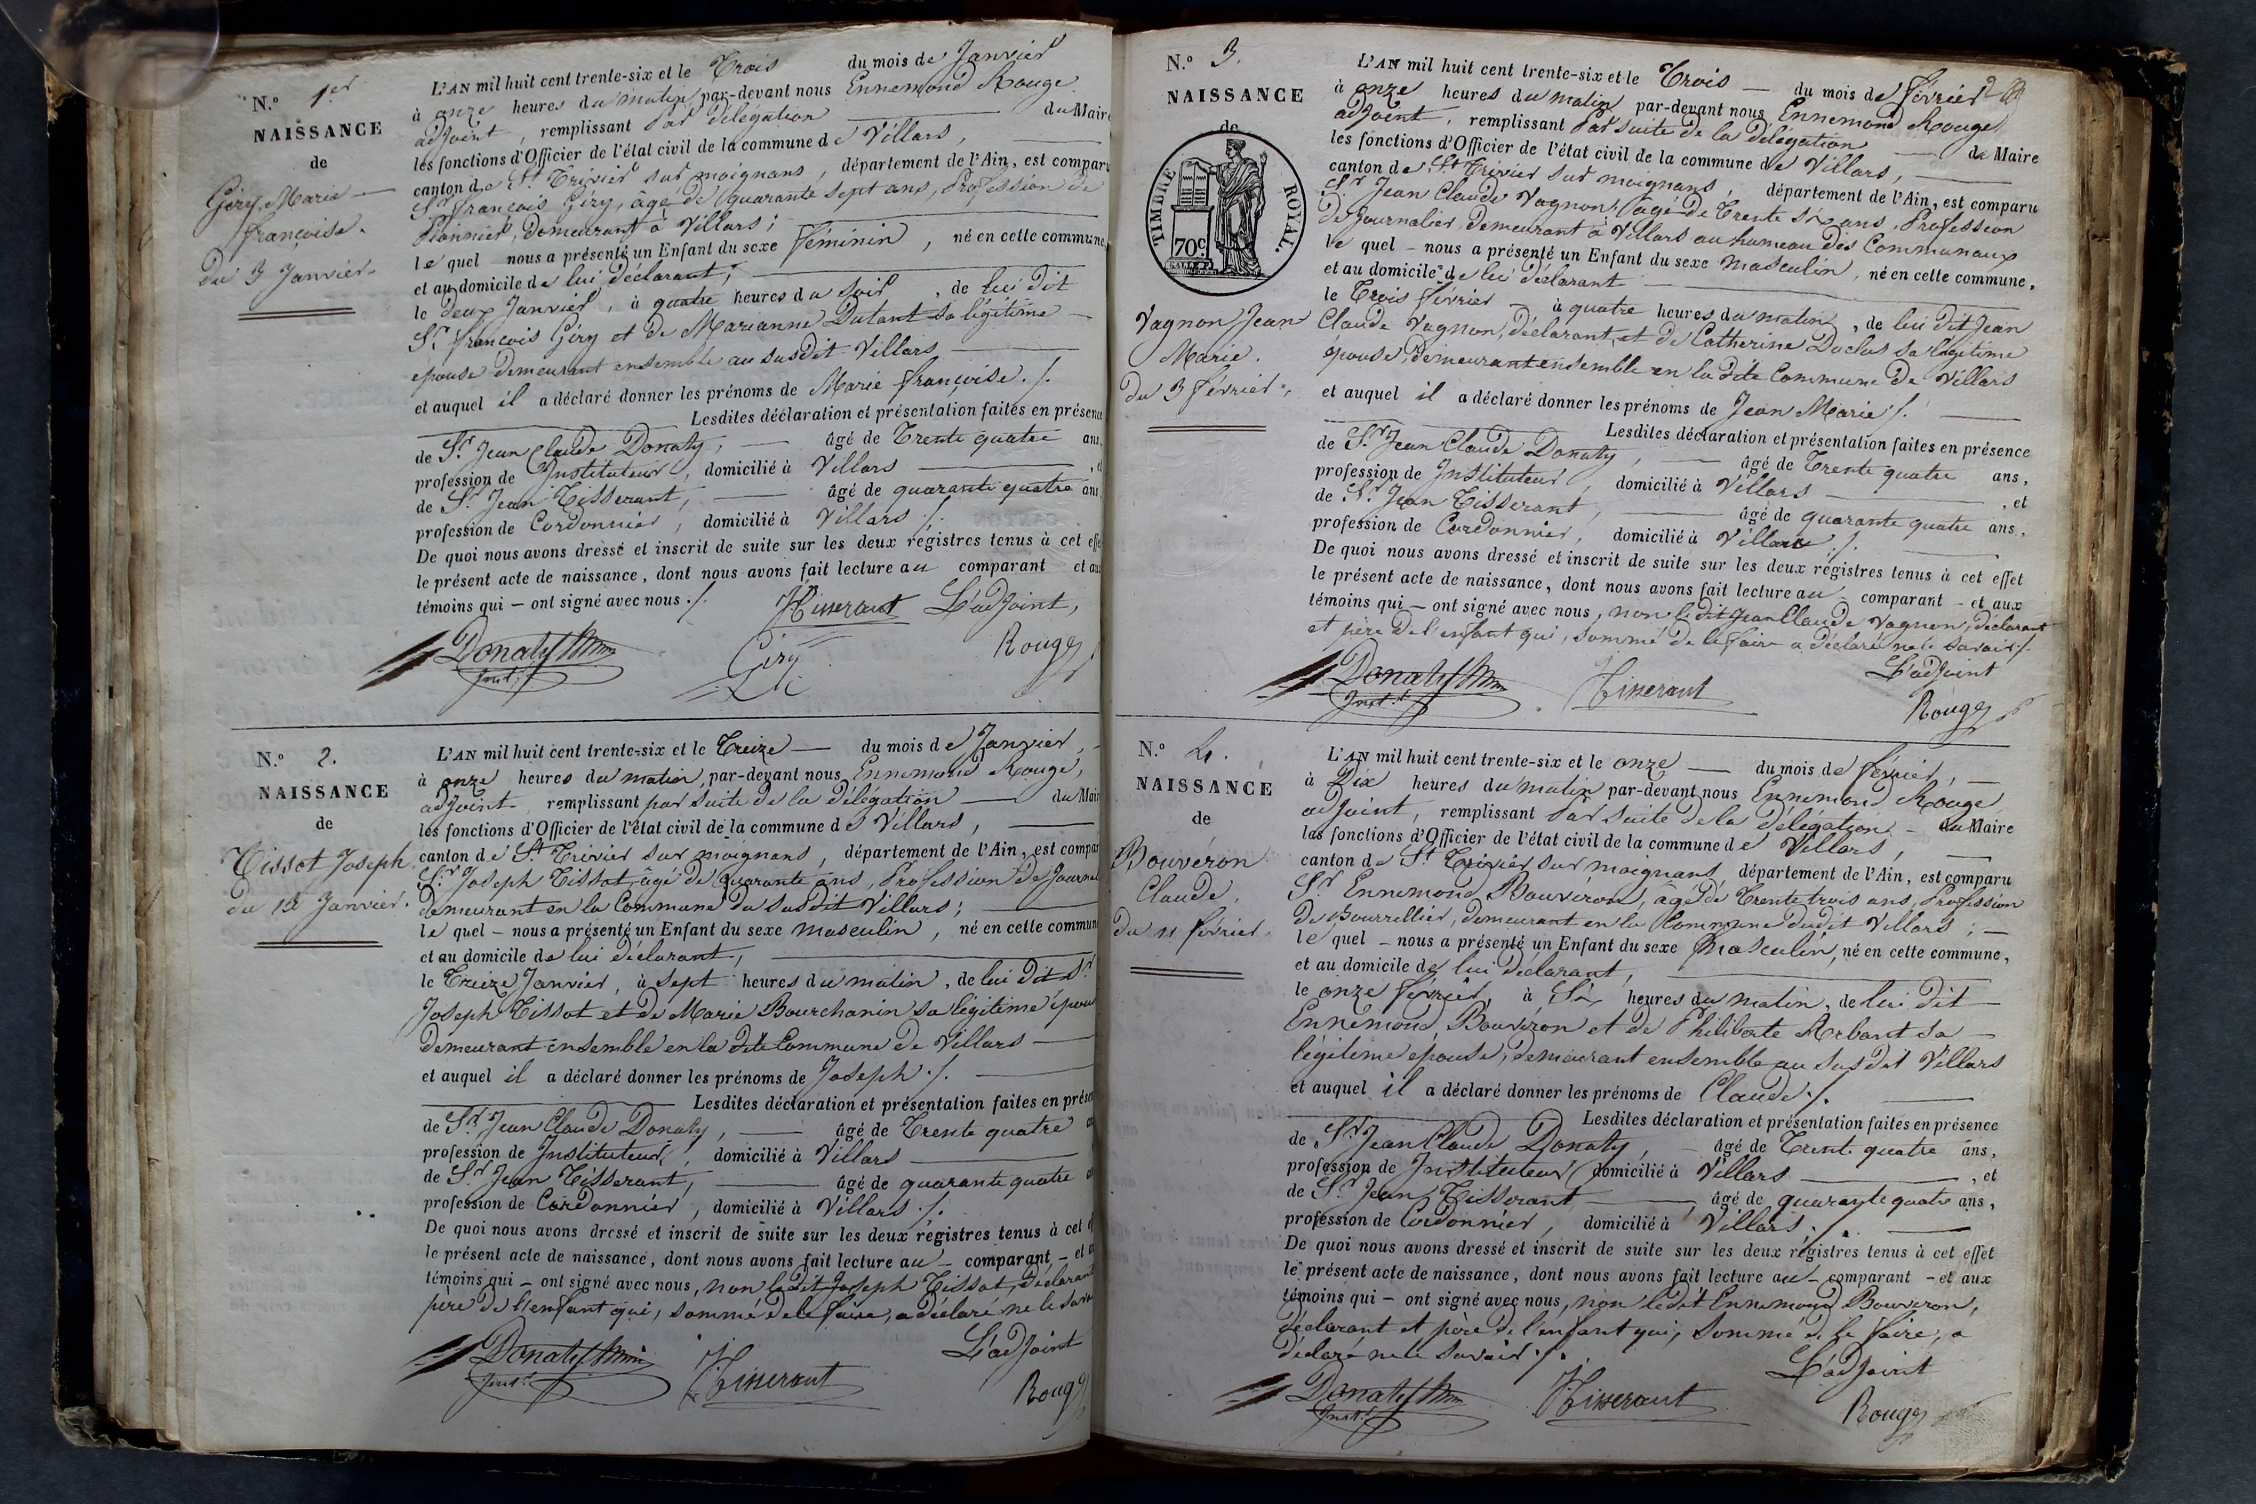 N.º 1er
NAISSANCE
de
Géry Marie
françoise.
du 3 Janvier.
L'AN mil huit cent trente-six et le Trois du mois de Janvier
à onze heures du matin par-devant nous Ennemond Rouge
adjoint, remplissant Par délégation du Maire
les fonctions d'Officier de l'état civil de la commune de Villars,
canton de St. Trivier sur moignans, département de l'Ain, est comparu
Sr. françois Géry, âgé de quarante sept ans, Profession de
, demeurant à Villars;
le quel nous a présenté un Enfant du sexe féminin, né en cette commune,
et au domicile de lui déclarant,
le deux Janvier, à quatre heures du soir, de lui dit
Sr. françois Géry et de Marianne Dutant sa légitime
epouse demeurant ensemble au susdit Villars
et auquel il a déclaré donner les prénoms de Marie françoise ./.
Lesdites déclaration et présentation faites en présence
de Sr. Jean Claude Donaty, âgé de Trente quatre ans,
profession de Instituteur, domicilié à Villars, et
de Sr. Jean Tisserant, âgé de quarante quatre ans,
profession de Cordonnier, domicilié à Villars ./.
De quoi nous avons dressé et inscrit de suite sur les deux régistres tenus à cet effet
le présent acte de naissance, dont nous avons fait lecture au comparant et aux
témoins qui – ont signé avec nous ./.
Tisserant L'adjoint,
Donaty Géry Rouge
Inst.
N.º 2.
NAISSANCE
de
Tissot Joseph
du 13 Janvier.
L'AN mil huit cent trente-six et le Treize — du mois de Janvier, -
à onze heures du matin, par-devant nous Ennemond Rouge,
adjoint remplissant par suite de la délégation — du Maire
les fonctions d'Officier de l'état civil de la commune de Villars,
canton de St. Trivier sur moignans, département de l'Ain, est compar
Sr. Joseph Tissot, âgé de Quarante ans, Profession de Journal
demeurant en la Commune du susdit Villars;
le quel – nous a présenté un Enfant du sexe masculin, né en cette commune
et au domicile de lui déclarant,
le Treize Janvier, à sept heures du matin, de lui dit Sr.
Joseph Tissot et de Marie Bourchanin sa légitime épouse
demeurant ensemble en la dite Commune de Villars
et auquel il a déclaré donner les prénoms de Joseph ./.
Lesdites déclaration et présentation faites en présen
de Sr. Jean Claude Donaty, âgé de Trente quatre an
profession de Instituteur, domicilié à Villars
de Sr. Jean Tisserant, âgé de quarante quatre an
profession de Cordonnier, domicilié à Villars ./.
De quoi nous avons dressé et inscrit de suite sur les deux régistres tenus à cet ef
le présent acte de naissance, dont nous avons fait lecture au – comparant – et au
témoins qui – ont signé avec nous, non le dit Joseph Tissot, déclarant
père de l'enfant qui, sommé de le faire, a déclaré ne le savoir
L'adjoint
Donaty Tisserant Rouge
Inst.
N.º 3.
NAISSANCE
de
TIMBRE ROYAL.
70c
Vagnon Jean
Marie.
du 3 février.
2
L'AN mil huit cent trente-six et le Trois — du mois de février
à onze heures du matin par-devant nous Ennemond Rouge
adjoint, remplissant Par suite de la délégation — du Maire
les fonctions d'Officier de l'état civil de la commune de Villars,
canton de St. Trivier sur moignans, département de l'Ain, est comparu
Sr. Jean Claude Vagnon, âgé de Trente six ans, Profession
de Journalier demeurant à Villars au hameau des Communaux
le quel – nous a présenté un Enfant du sexe masculin, né en cette commune,
et au domicile de lui déclarant
le Trois février à quatre heures du matin, de lui dit Jean
Claude Vagnon, déclarant, et de Catherine Duclos sa légitime
épouse, demeurant ensemble en la dite Commune de Villars
et auquel il a déclaré donner les prénoms de Jean Marie ./.
Lesdites déclaration et présentation faites en présence
de Sr. Jean Claude Donaty, âgé de Trente quatre ans,
profession de Instituteur, domicilié à Villars, et
de Sr. Jean Tisserant, âgé de quarante quatre ans,
profession de Cordonnier, domicilié à Villars ./.
De quoi nous avons dressé et inscrit de suite sur les deux régistres tenus à cet effet
le présent acte de naissance, dont nous avons fait lecture au – comparant – et aux
témoins qui – ont signé avec nous, non le dit Jean Claude Vagnon, déclarant
et père de l'enfant qui, sommé de le faire a déclaré ne le savoir ./.
L'adjoint
Donaty Tisserant Rouge
Inst.
N.º 4.
NAISSANCE
de
Bouvéron
Claude,
du 11 février.
L'AN mil huit cent trente-six et le onze — du mois de février, —
à Dix heures du matin par-devant nous Ennemond Rouge
adjoint, remplissant Par suite de la délégation – du Maire
les fonctions d'Officier de l'état civil de la commune de Villars,
canton de St. Trivier sur moignans, département de l'Ain, est comparu
Sr. Ennemond Bouveron, âgé de Trente trois ans, Profession
de Bourrellier, demeurant en la Commune dudit Villars; —
le quel – nous a présenté un Enfant du sexe Masculin, né en cette commune,
et au domicile de lui déclarant,
le onze février, à Six heures du matin, de lui dit
Ennemond Bouvéron et de Philiberte Arbant sa
légitime épouse, demeurant ensemble au susdit Villars
et auquel il a déclaré donner les prénoms de Claude ./.
Lesdites déclaration et présentation faites en présence
de Sr. Jean Claude Donaty, âgé de Trente quatre ans,
profession de Instituteur, domicilié à Villars, et
de Sr. Jean Tisserant, âgé de quarante quatre ans,
profession de Cordonnier, domicilié à Villars ./.
De quoi nous avons dressé et inscrit de suite sur les deux régistres tenus à cet effet
le présent acte de naissance, dont nous avons fait lecture au – comparant – et aux
témoins qui – ont signé avec nous, non le dit Ennemond Bouveron,
déclarant et père de l'enfant qui, sommé de le faire, a
déclaré ne le savoir ./.
L'adjoint
Donaty Tisserant Rouge
Inst.